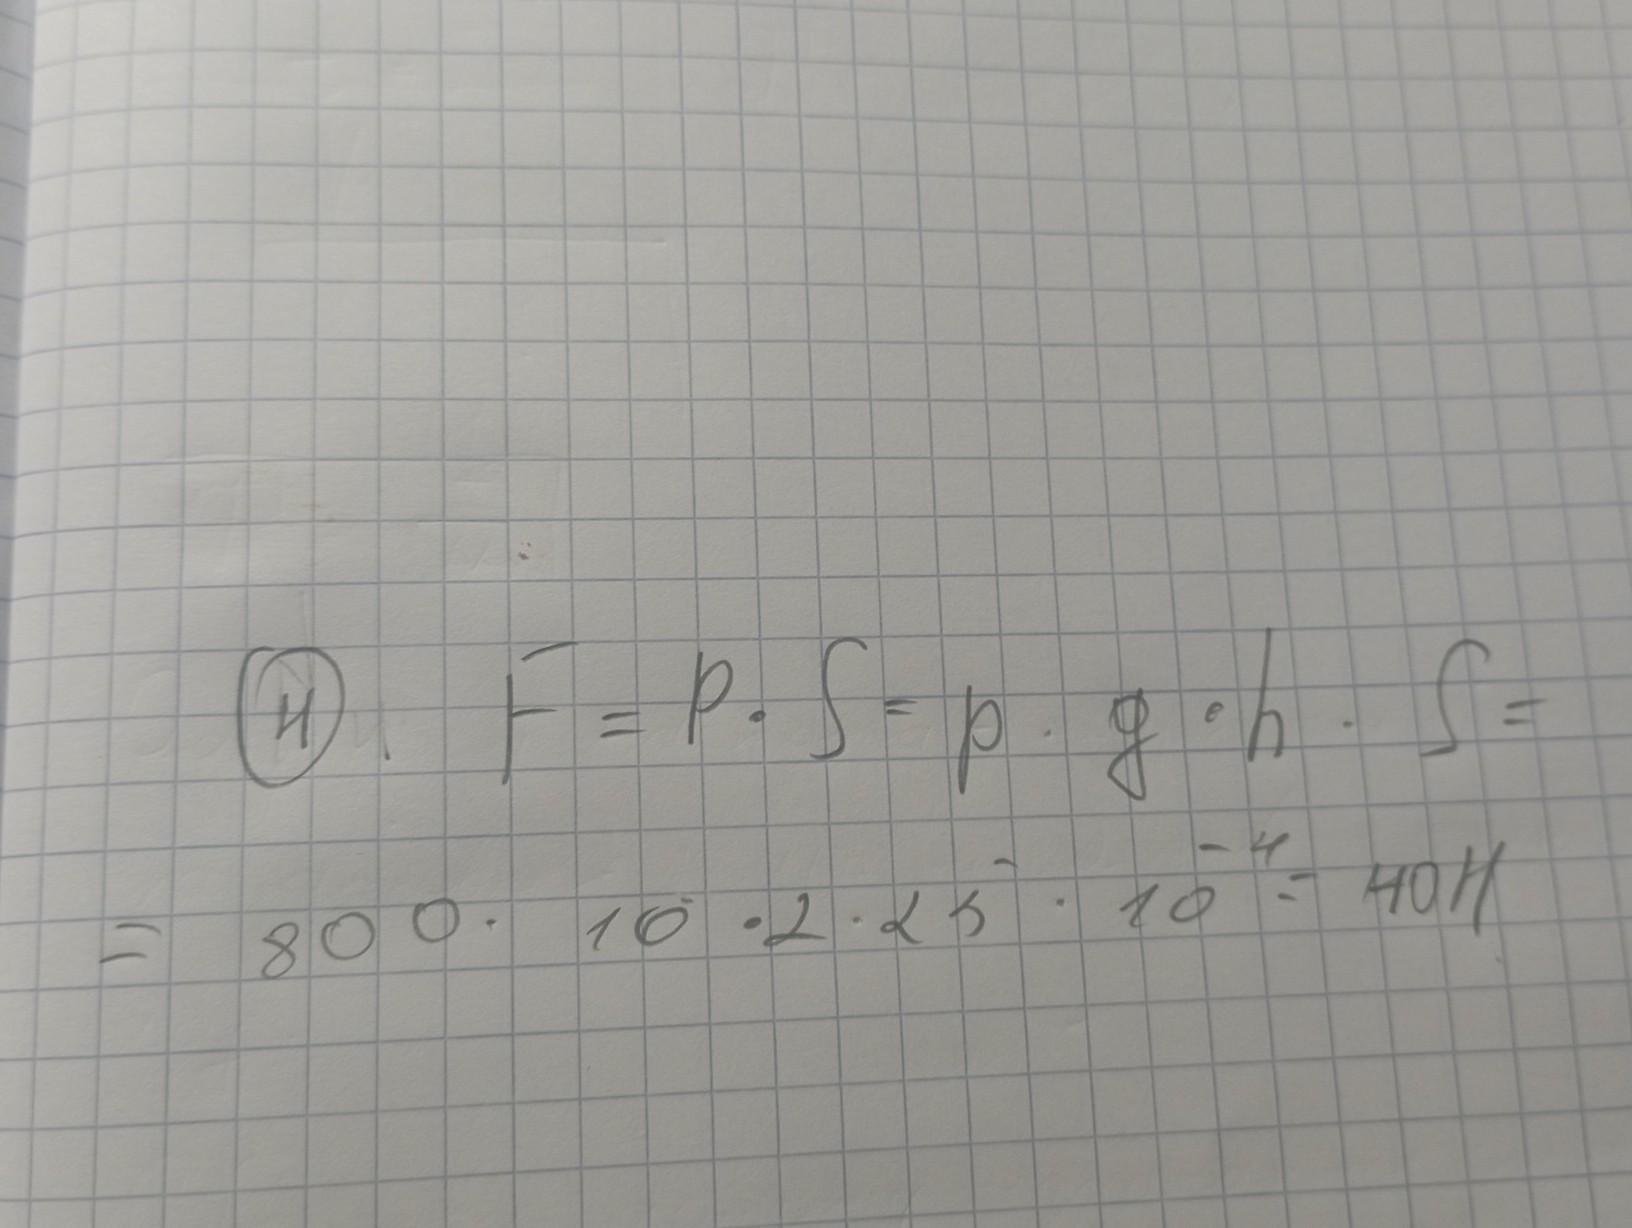 4. F = p · S = ρ · g · h · S =
= 800 · 10 · 2 · 25 · 10⁻⁴ = 40Н